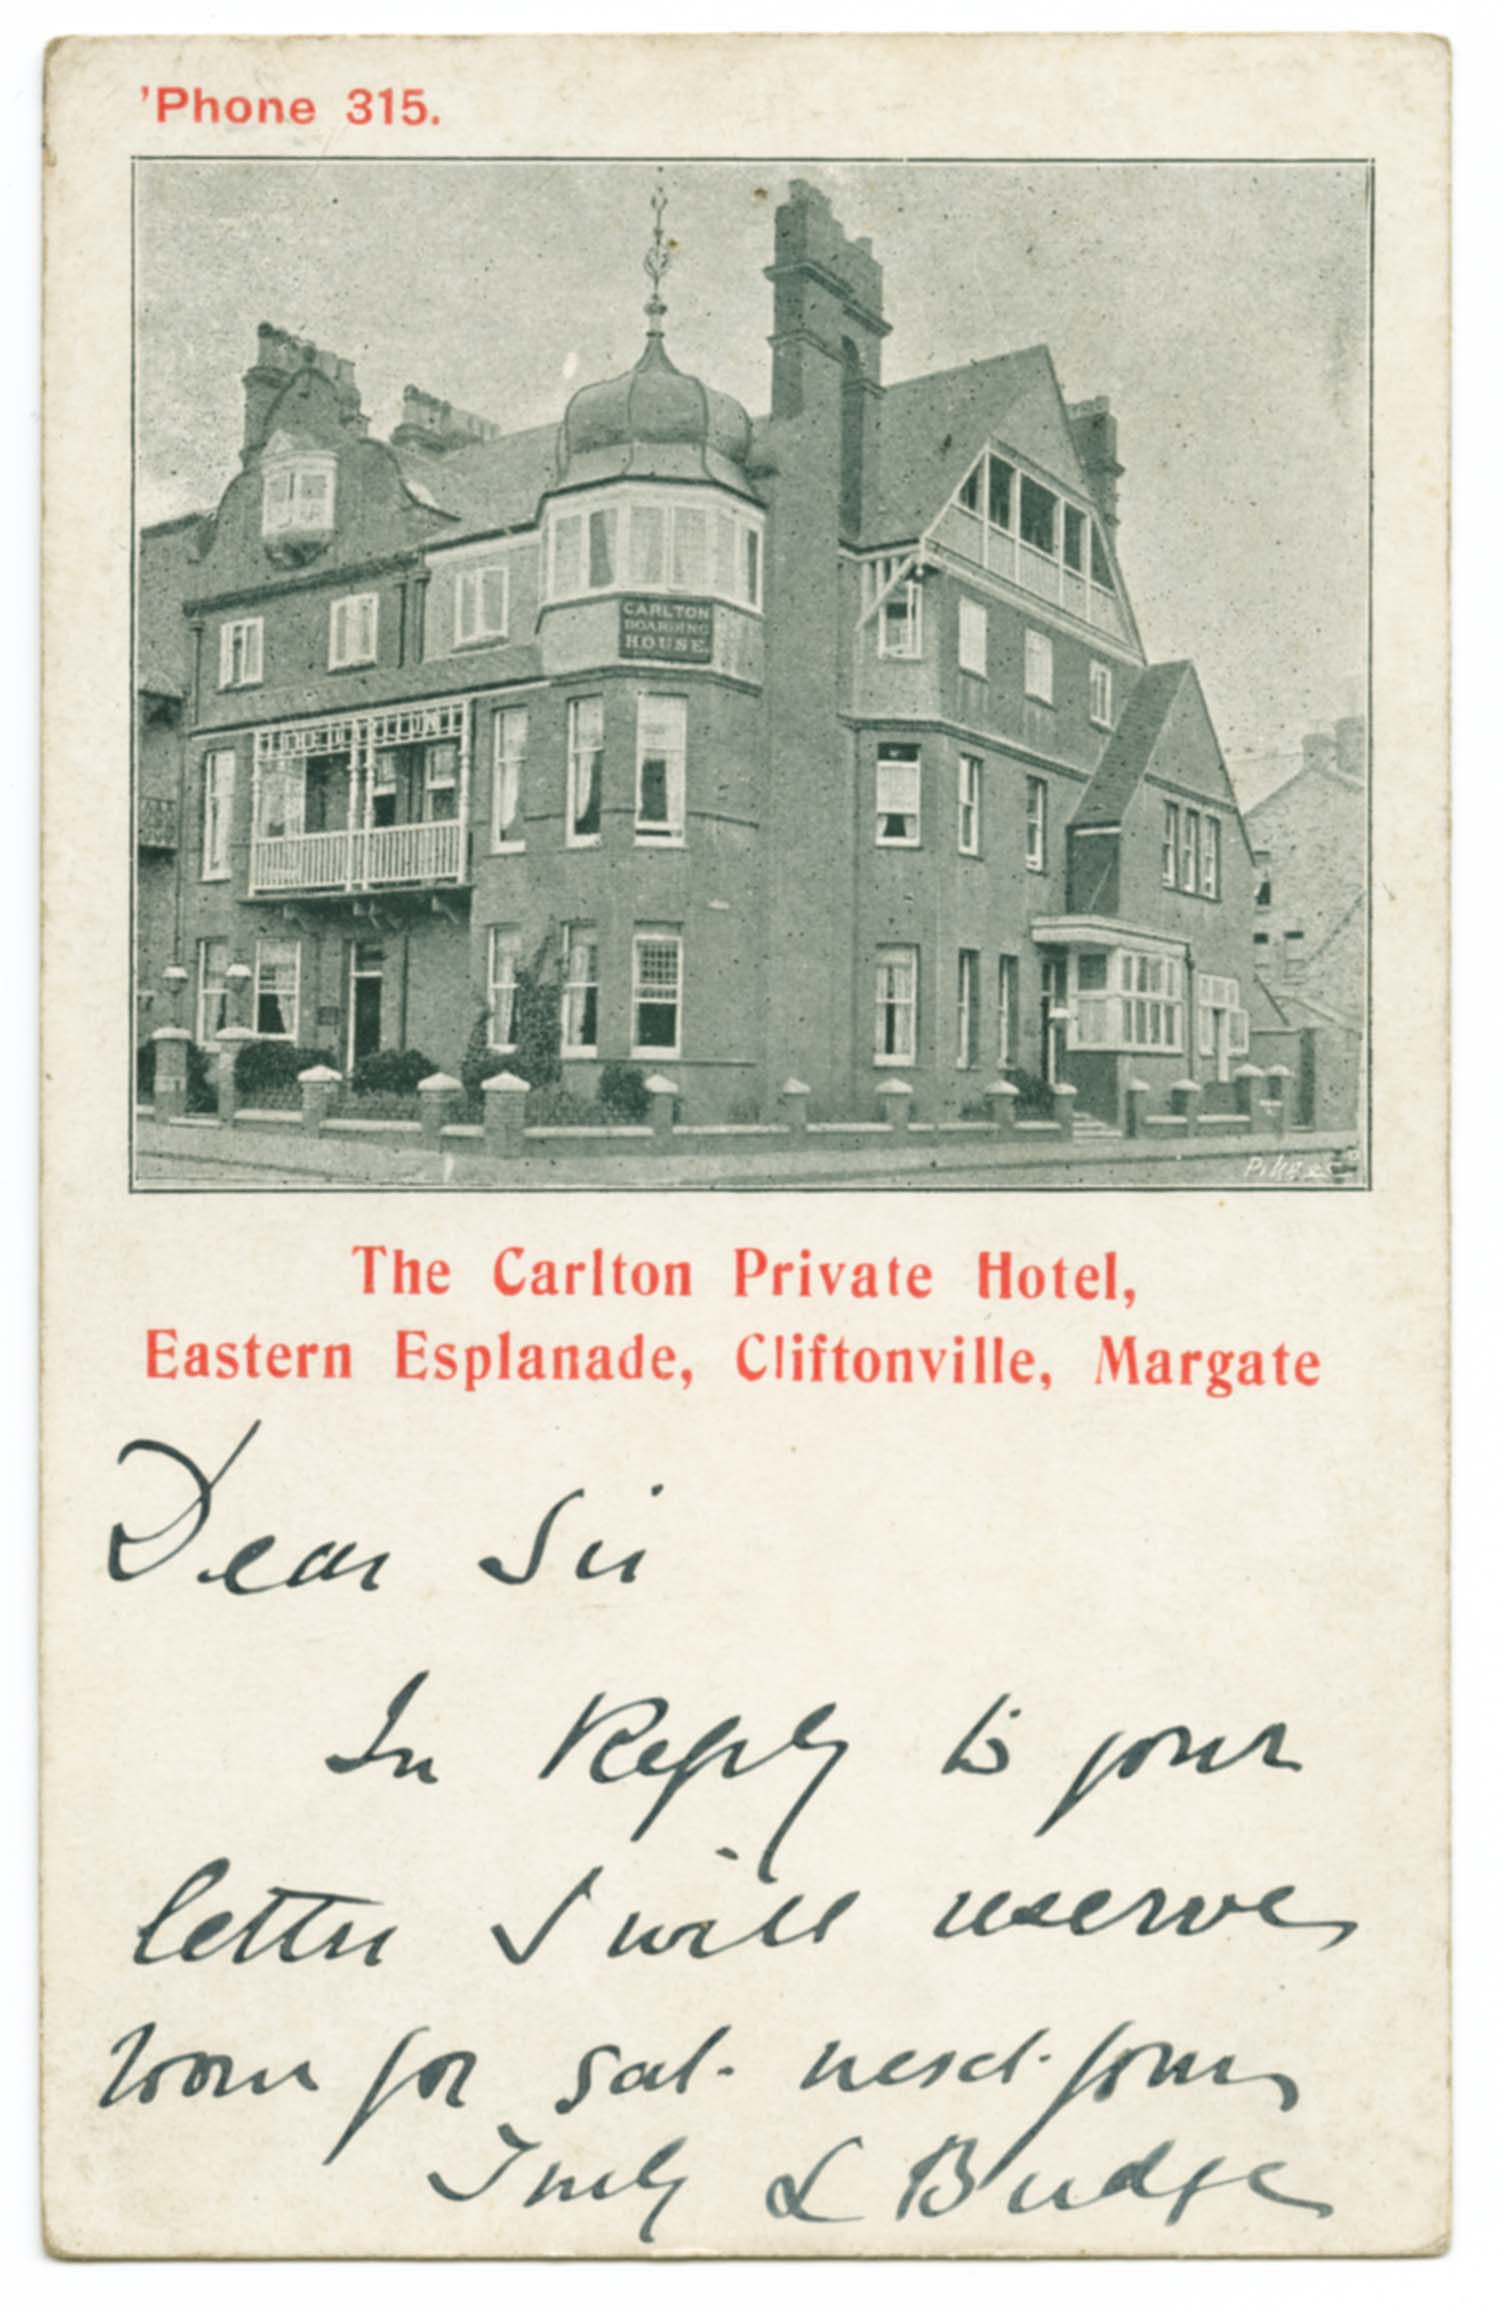 'Phone 315.
CARLTON
BOARDING
HOUSE.
The Carlton Private Hotel,
Eastern Esplanade, Cliftonville, Margate
Dear Sir
In Reply to your
letter I will reserve
room for sat. next. yours
Truly L Budge